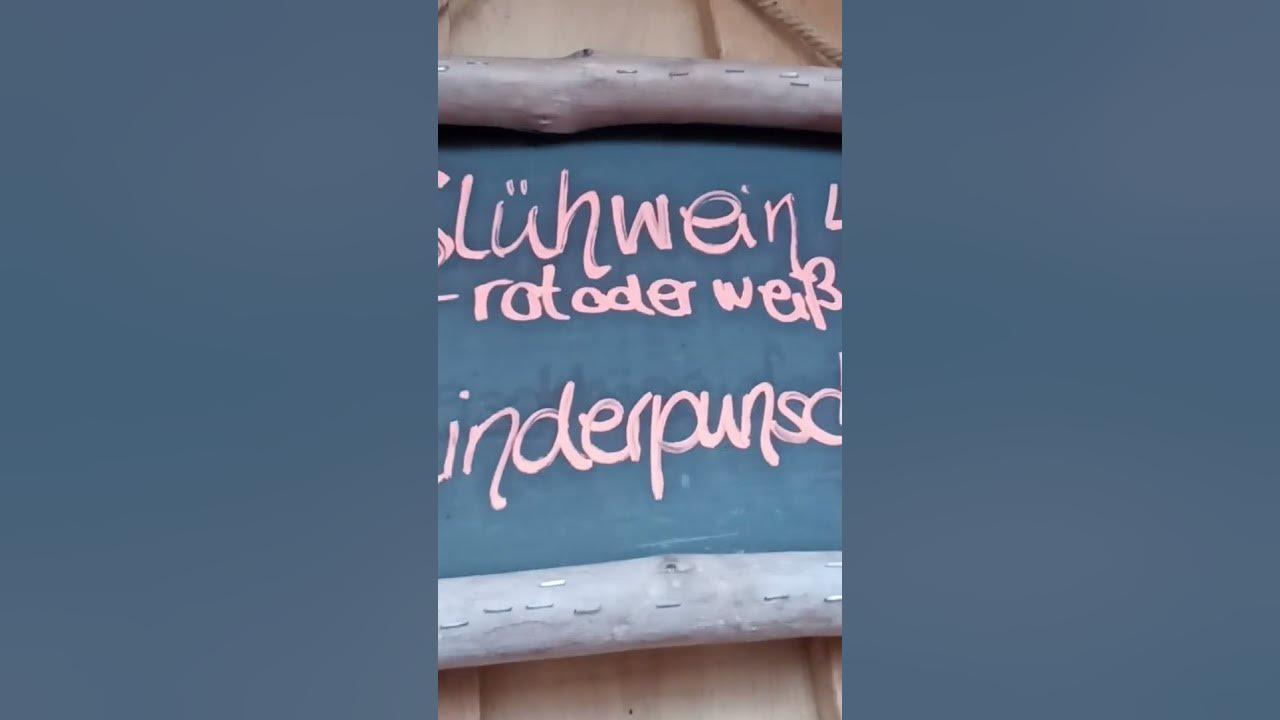 Glühwein 4
- rot oder weiß
Kinderpunsch